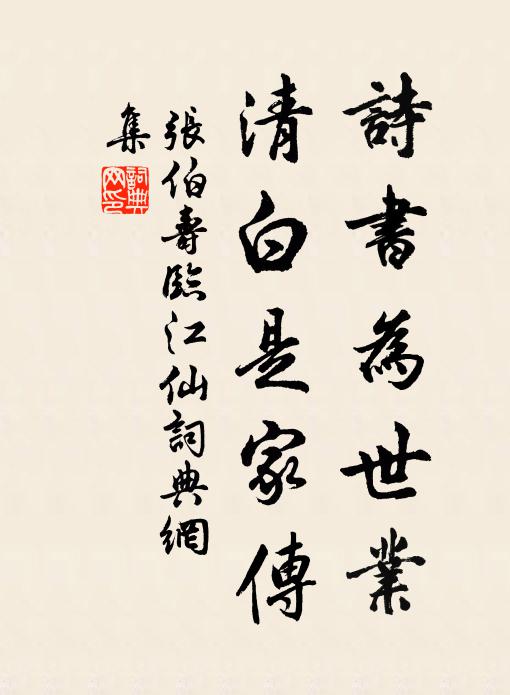 詩書為世業
清白是家傳
張伯壽臨江仙詞典網
集
詞典
网印